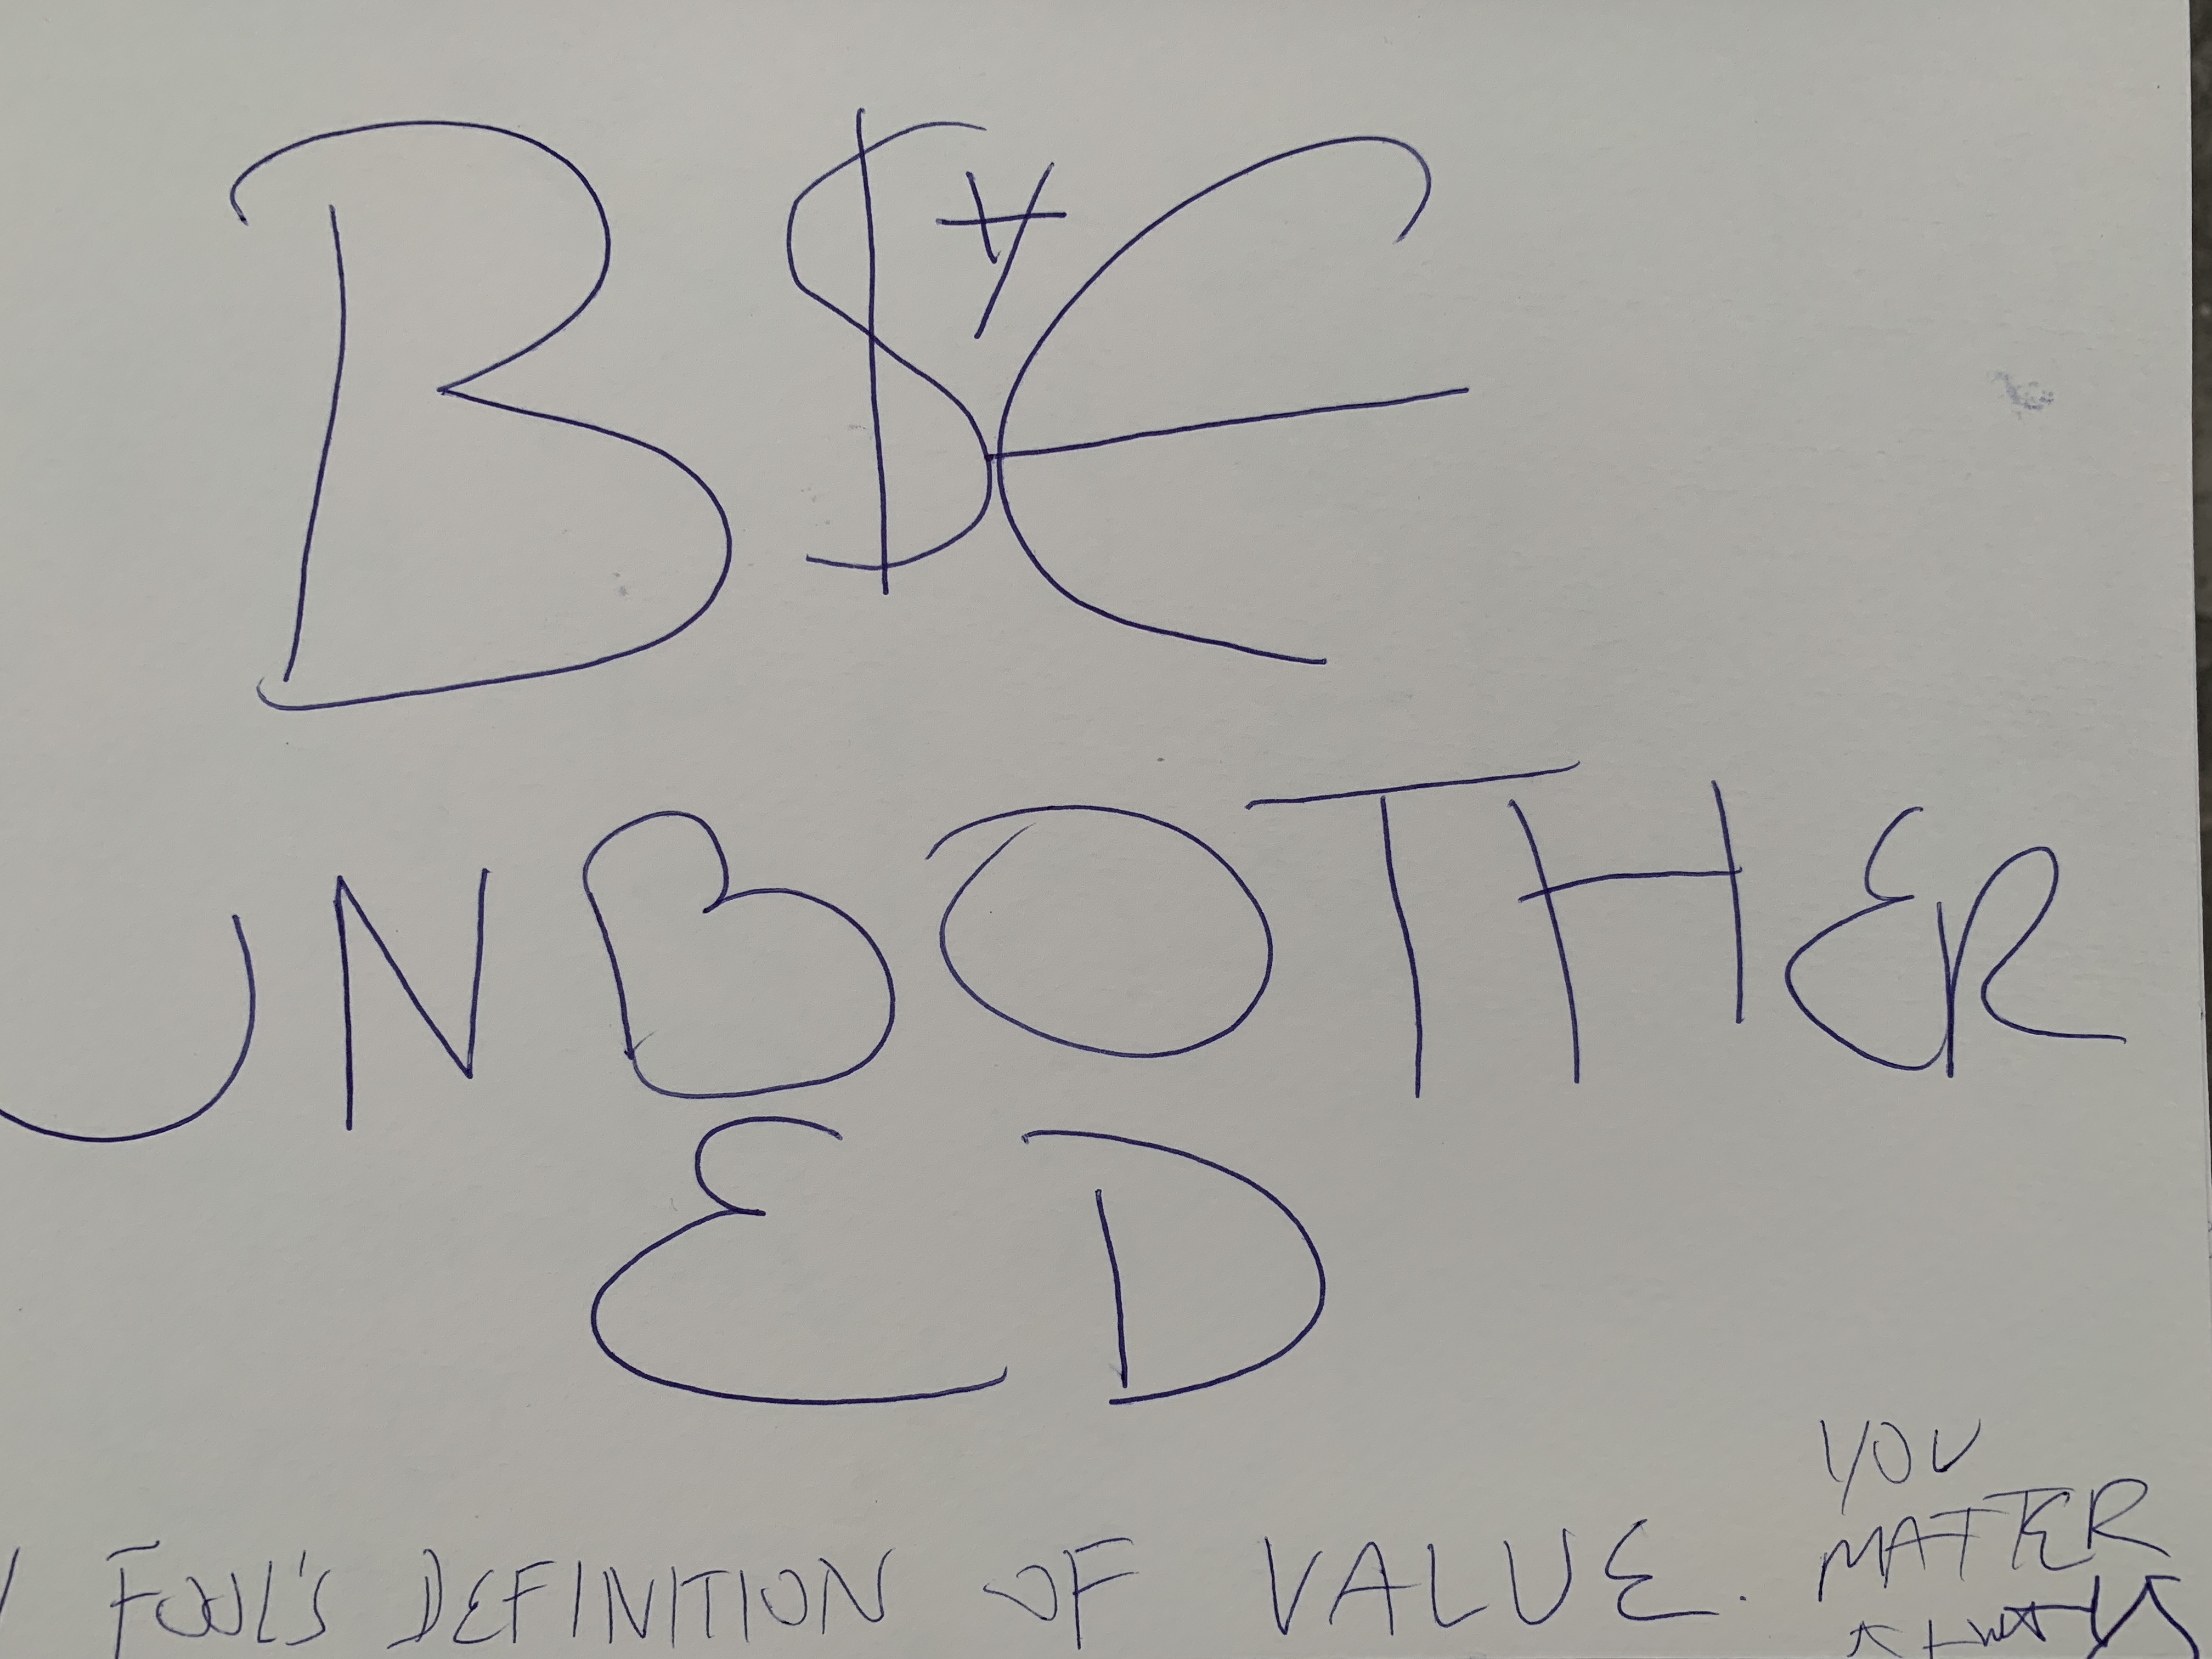 B$¥€
UNBOTHER
ED
FOOL'S DEFINITION OF VALUE.
YOU
MATTER